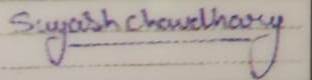 Suyash Chowdhary